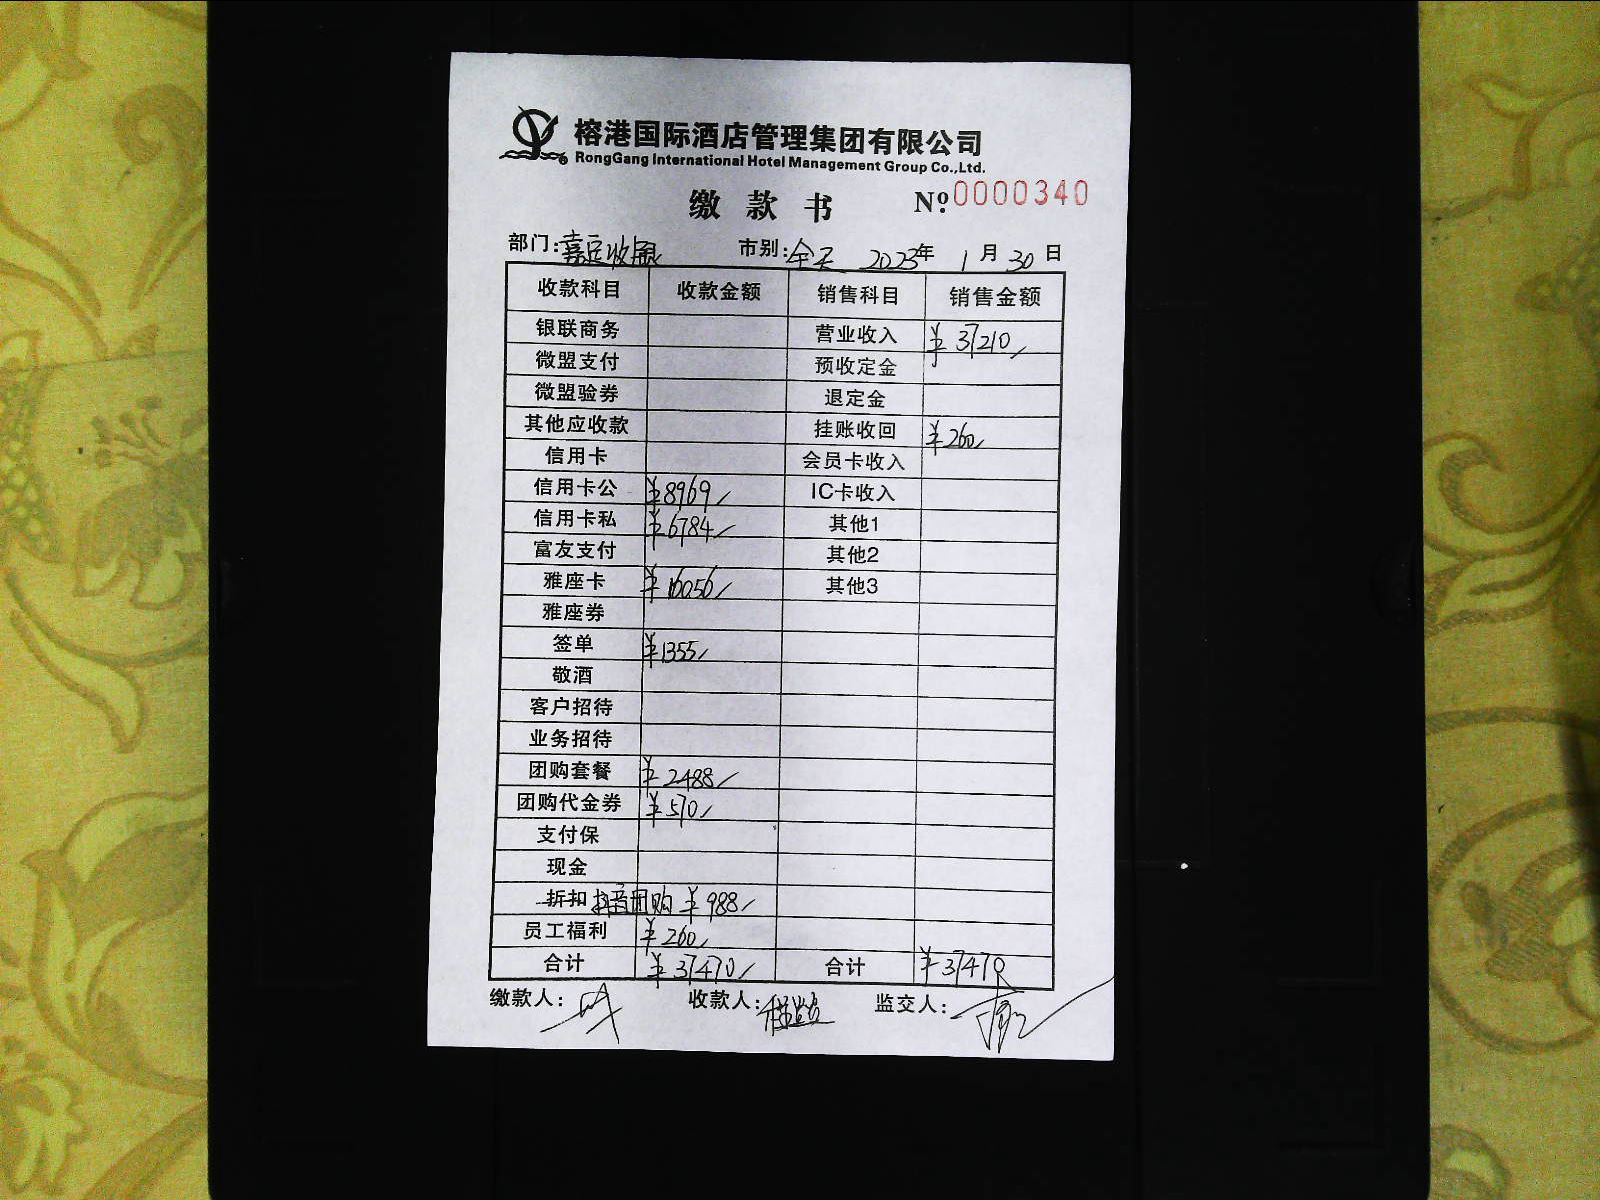 榕港国际酒店管理集团有限公司
RongGang International Hotel Management Group Co.,Ltd.
缴款书 Nº: 0000340
部门: 嘉定收银 市别: 全天 2023年 1月 30日
收款科目 收款金额 销售科目 销售金额
银联商务 营业收入 ¥37210
微盟支付 预收定金
微盟验券 退定金
其他应收款 挂账收回 ¥260
信用卡 会员卡收入
信用卡公 ¥8969 IC卡收入
信用卡私 ¥6784 其他1
富友支付 其他2
雅座卡 ¥16056 其他3
雅座券
签单 ¥1355
敬酒
客户招待
业务招待
团购套餐 ¥2488
团购代金券 ¥570
支付保
现金
折扣 抖音团购 ¥988
员工福利 ¥260
合计 ¥37470 合计 ¥37470
缴款人: 收款人: 监交人: